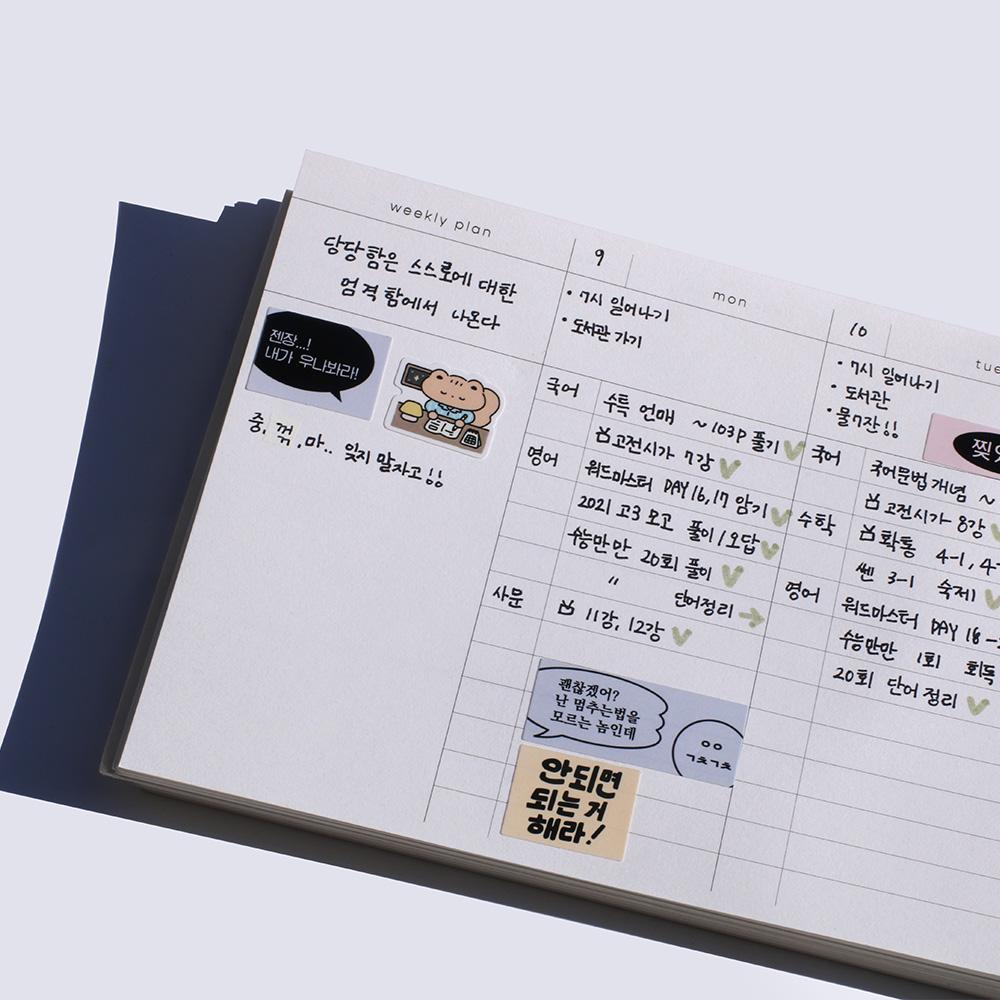 weekly plan
당당함은 스스로에 대한
엄격함에서 나온다
젠장...!
내가 우나봐라!
중.꺾.마.. 잊지 말자고!!
9
mon
• 7시 일어나기
• 도서관 가기
국어
수특 언매 ~103p 풀기
고전시가 7강
영어
워드마스터 DAY 16,17 암기
2021 고3 모고 풀이/오답
수능만만 20회 풀이
" 단어정리 →
사문
11강, 12강
괜찮겠어?
난 멈추는법을
모르는 놈인데
ㄱㅊㄱㅊ
안되면
되는거
해라!
10
tue
• 7시 일어나기
• 도서관
• 물7잔!!
국어
국어문법 개념 ~
고전시가 8강
수학
확통 4-1, 4-
쎈 3-1 숙제
영어
워드마스터 DAY 18-
수능만만 1회 회독
20회 단어 정리